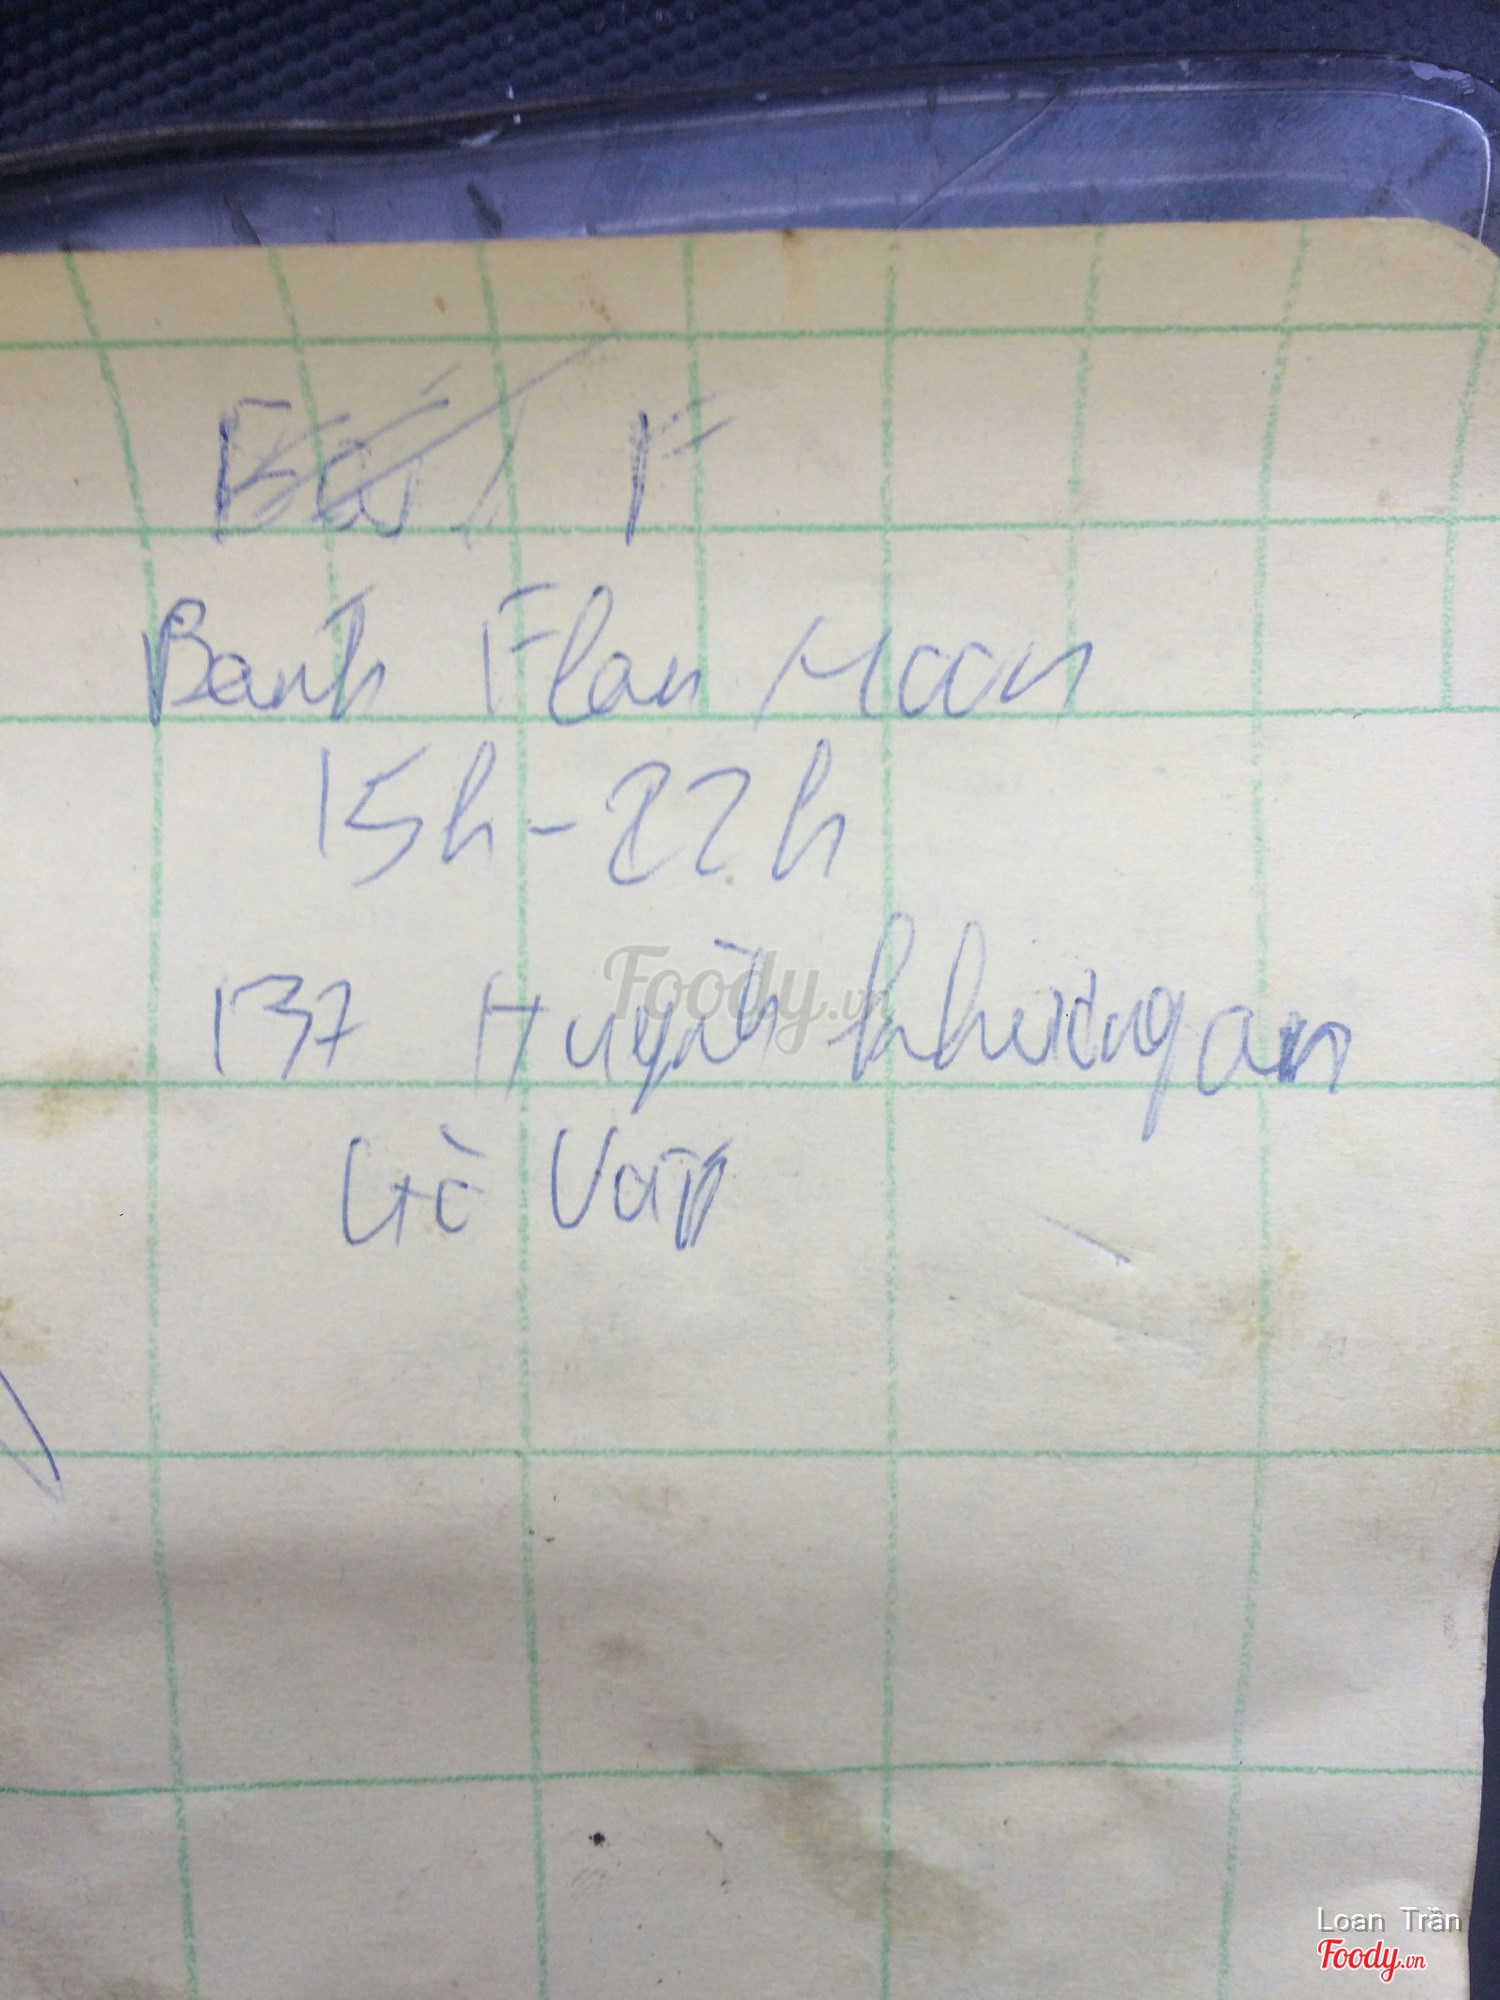 F
Bánh Flan Moon
15h - 22h
137 Huỳnh khươngan
Gò Vấp
Foody.vn
Loan Trần
Foody.vn